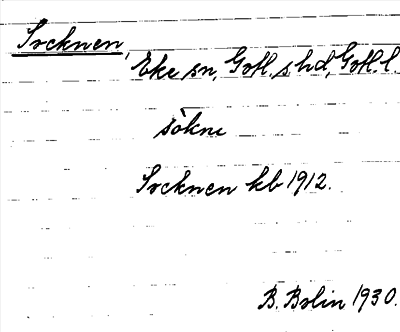 Socknen,
Eke sn, Gotl. s hd, Gotl. l.
sökne
Socknen kb 1912.
B. Bolin 1930.